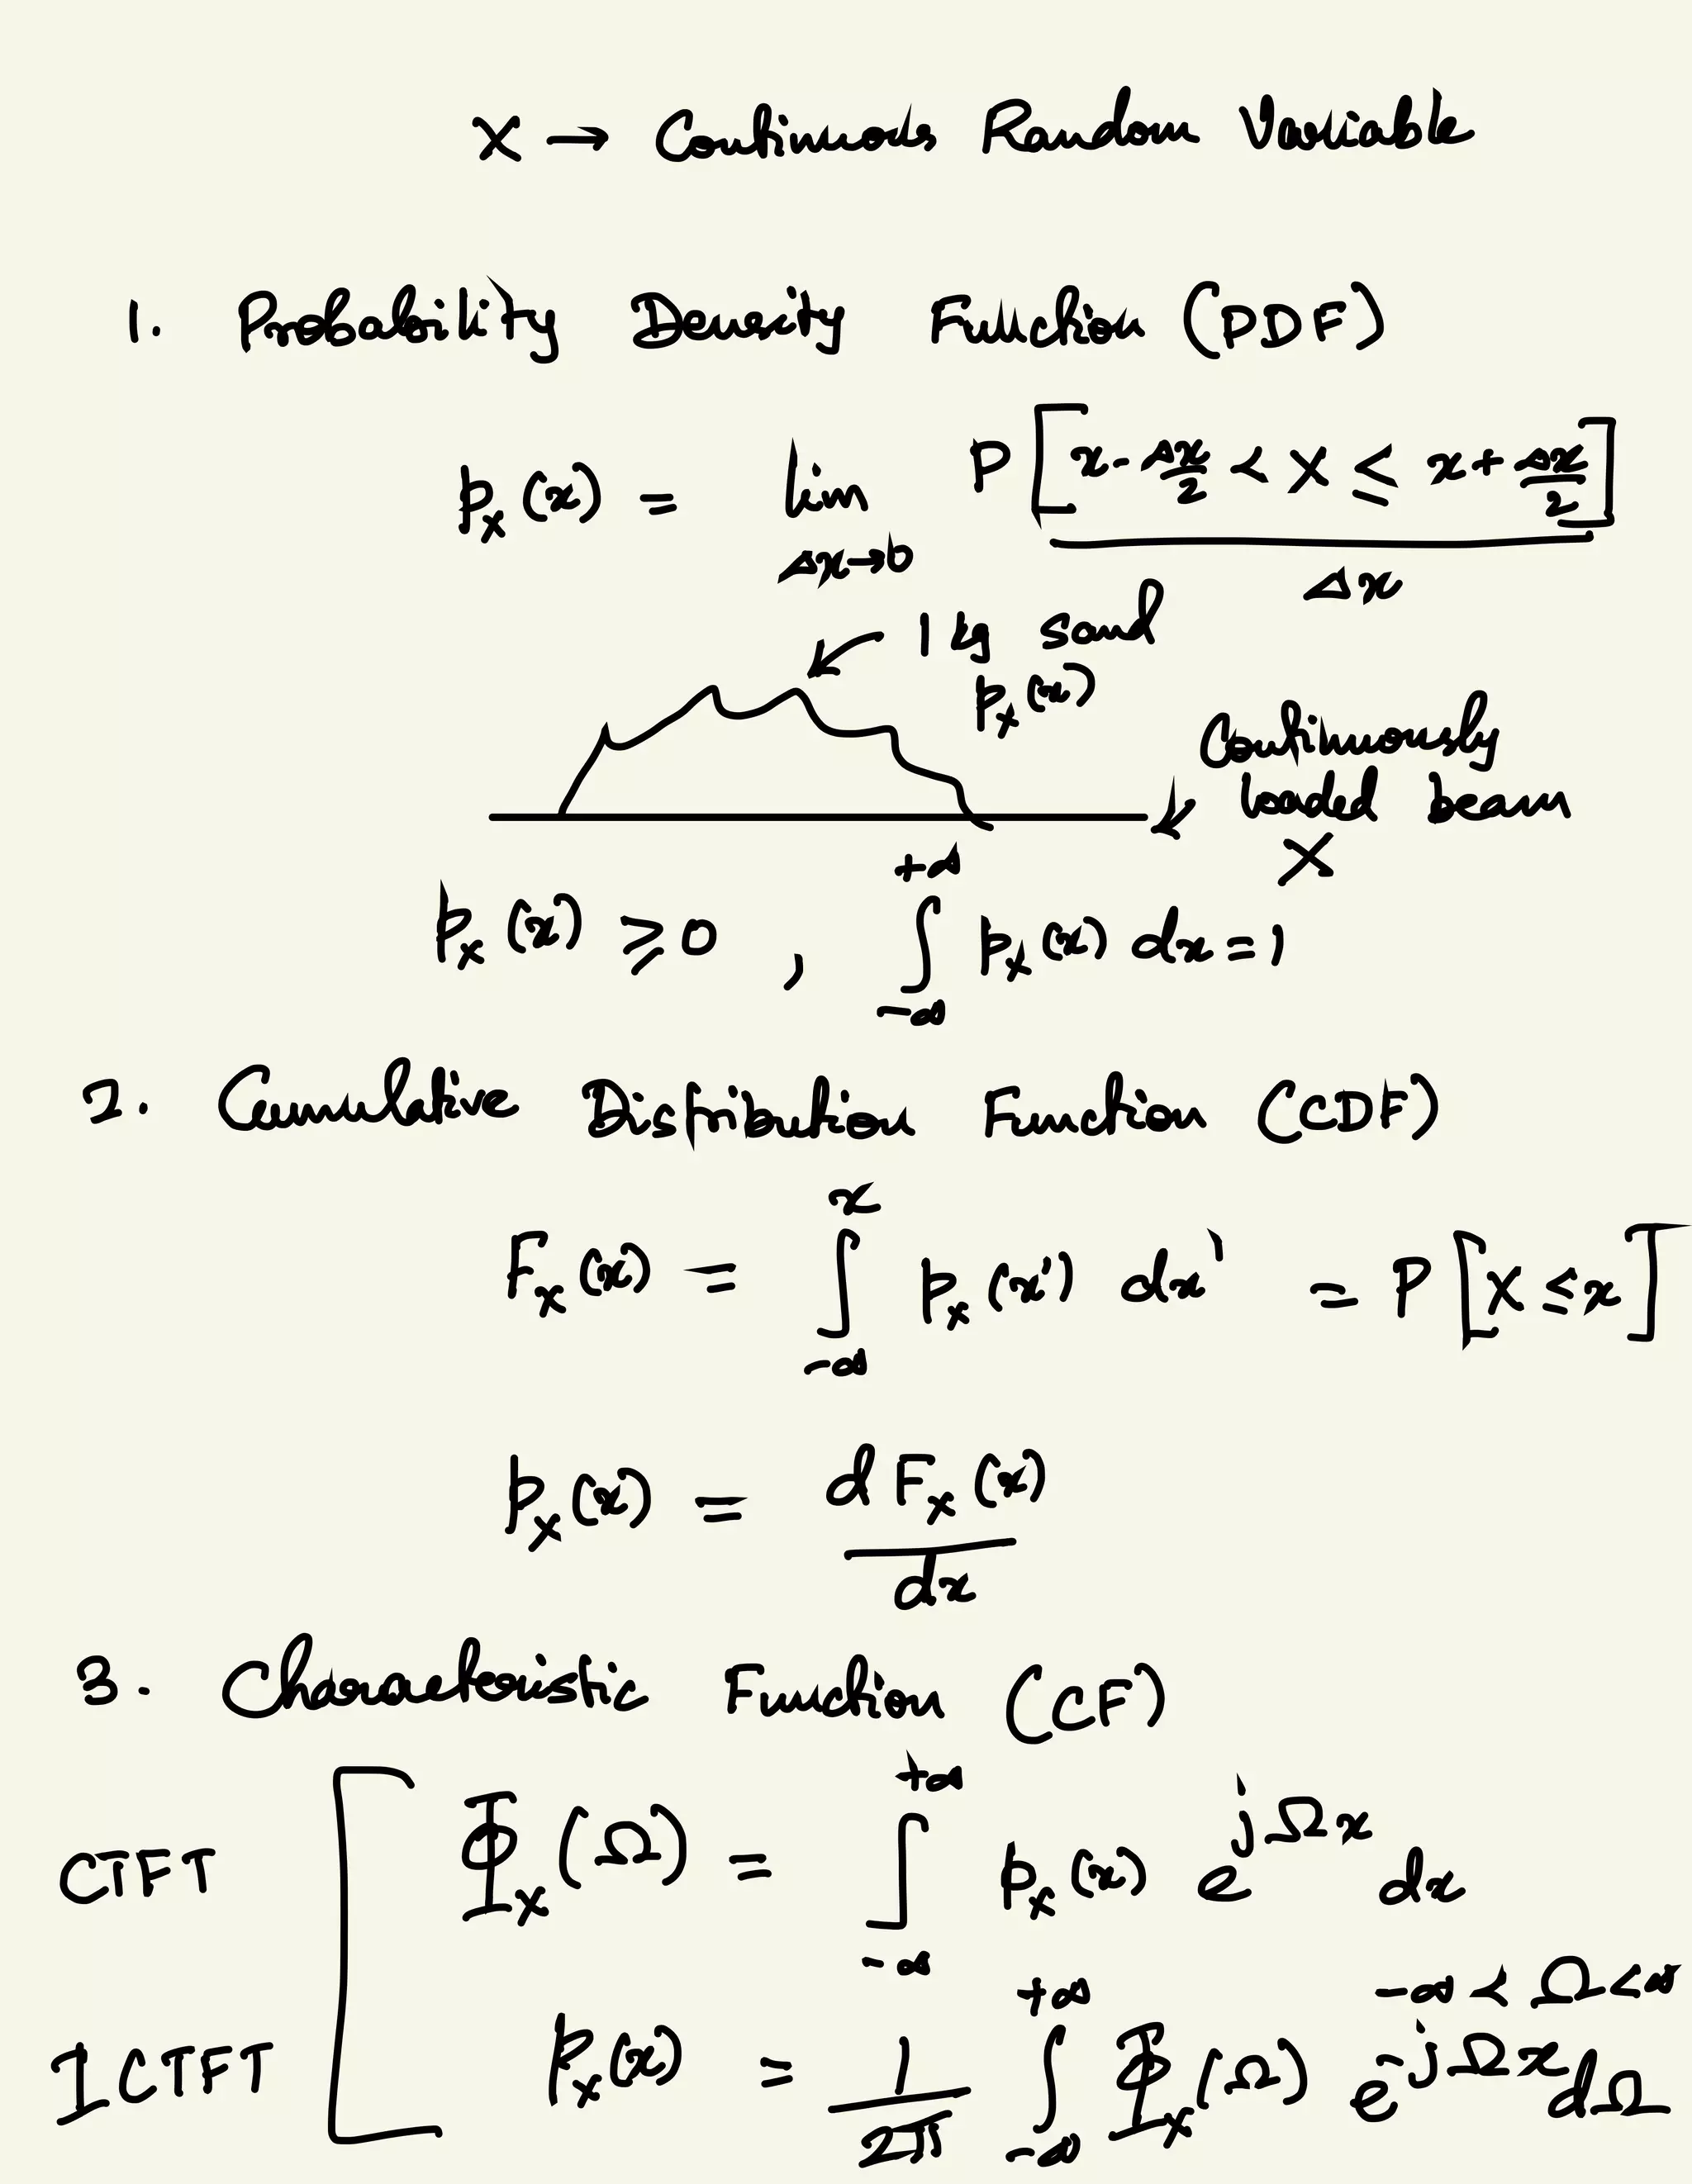 X → Continuous Random Variable
1. Probability Density Function (PDF)
p_X(x) = lim_{Δx→0} P[x - Δx/2 < X ≤ x + Δx/2] / Δx
1 kg sand
p_X(x)
Continuously
loaded beam
X
p_X(x) ≥ 0 , ∫_{-∞}^{+∞} p_X(x) dx = 1
2. Cumulative Distribution Function (CDF)
F_X(x) = ∫_{-∞}^{x} p_X(x') dx' = P[X ≤ x]
p_X(x) = d F_X(x) / dx
3. Characteristic Function (CF)
CTFT Φ_X(Ω) = ∫_{-∞}^{+∞} p_X(x) e^{jΩx} dx
-∞ < Ω < ∞
ICTFT p_X(x) = 1/2π ∫_{-∞}^{+∞} Φ_X(Ω) e^{-jΩx} dΩ